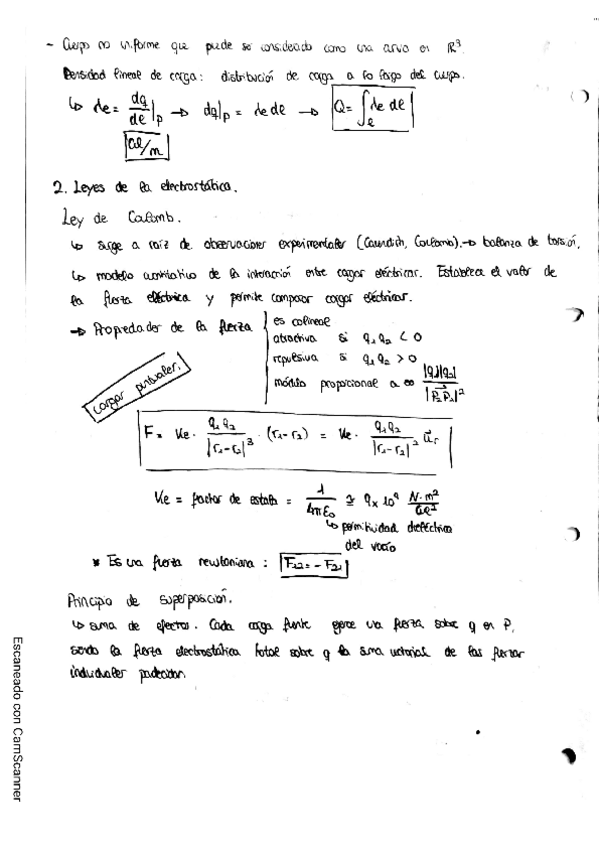 - Cuerpo no uniforme que puede ser considerado como una curva en R³.
Densidad lineal de carga: distribución de carga a lo largo del cuerpo.
↳ λe = dq/de|p → dq|p = λe de → Q = ∫e λe de
Cul/m
2. Leyes de la electrostática.
Ley de Coulomb.
↳ surge a raíz de observaciones experimentales (Cavendish, Coulomb). → balanza de torsión.
↳ modelo cuantitativo de la interacción entre cargas eléctricas. Establece el valor de
la fuerza eléctrica y permite comparar cargas eléctricas.
→ Propiedades de la fuerza
es colineal
atractiva si q₁q₂ < 0
repulsiva si q₁q₂ > 0
módulo proporcional a ∞ |q₁||q₂| / |P₂P₁|²
cargas puntuales.
F = Ke · q₁q₂ / |r₁-r₂|³ · (r₁-r₂) = Ke · q₁q₂ / |r₁-r₂|² ūr
Ke = factor de escala = 1/4πε₀ ≅ 9x10⁹ N·m²/Cul²
↳ permitividad dieléctrica
del vacío
* Es una fuerza newtoniana : F₁₂ = - F₂₁
Principio de superposición.
↳ suma de efectos. Cada carga fuente ejerce una fuerza sobre q en P,
siendo la fuerza electrostática total sobre q la suma vectorial de las fuerzas
individuales
Escaneado con CamScanner